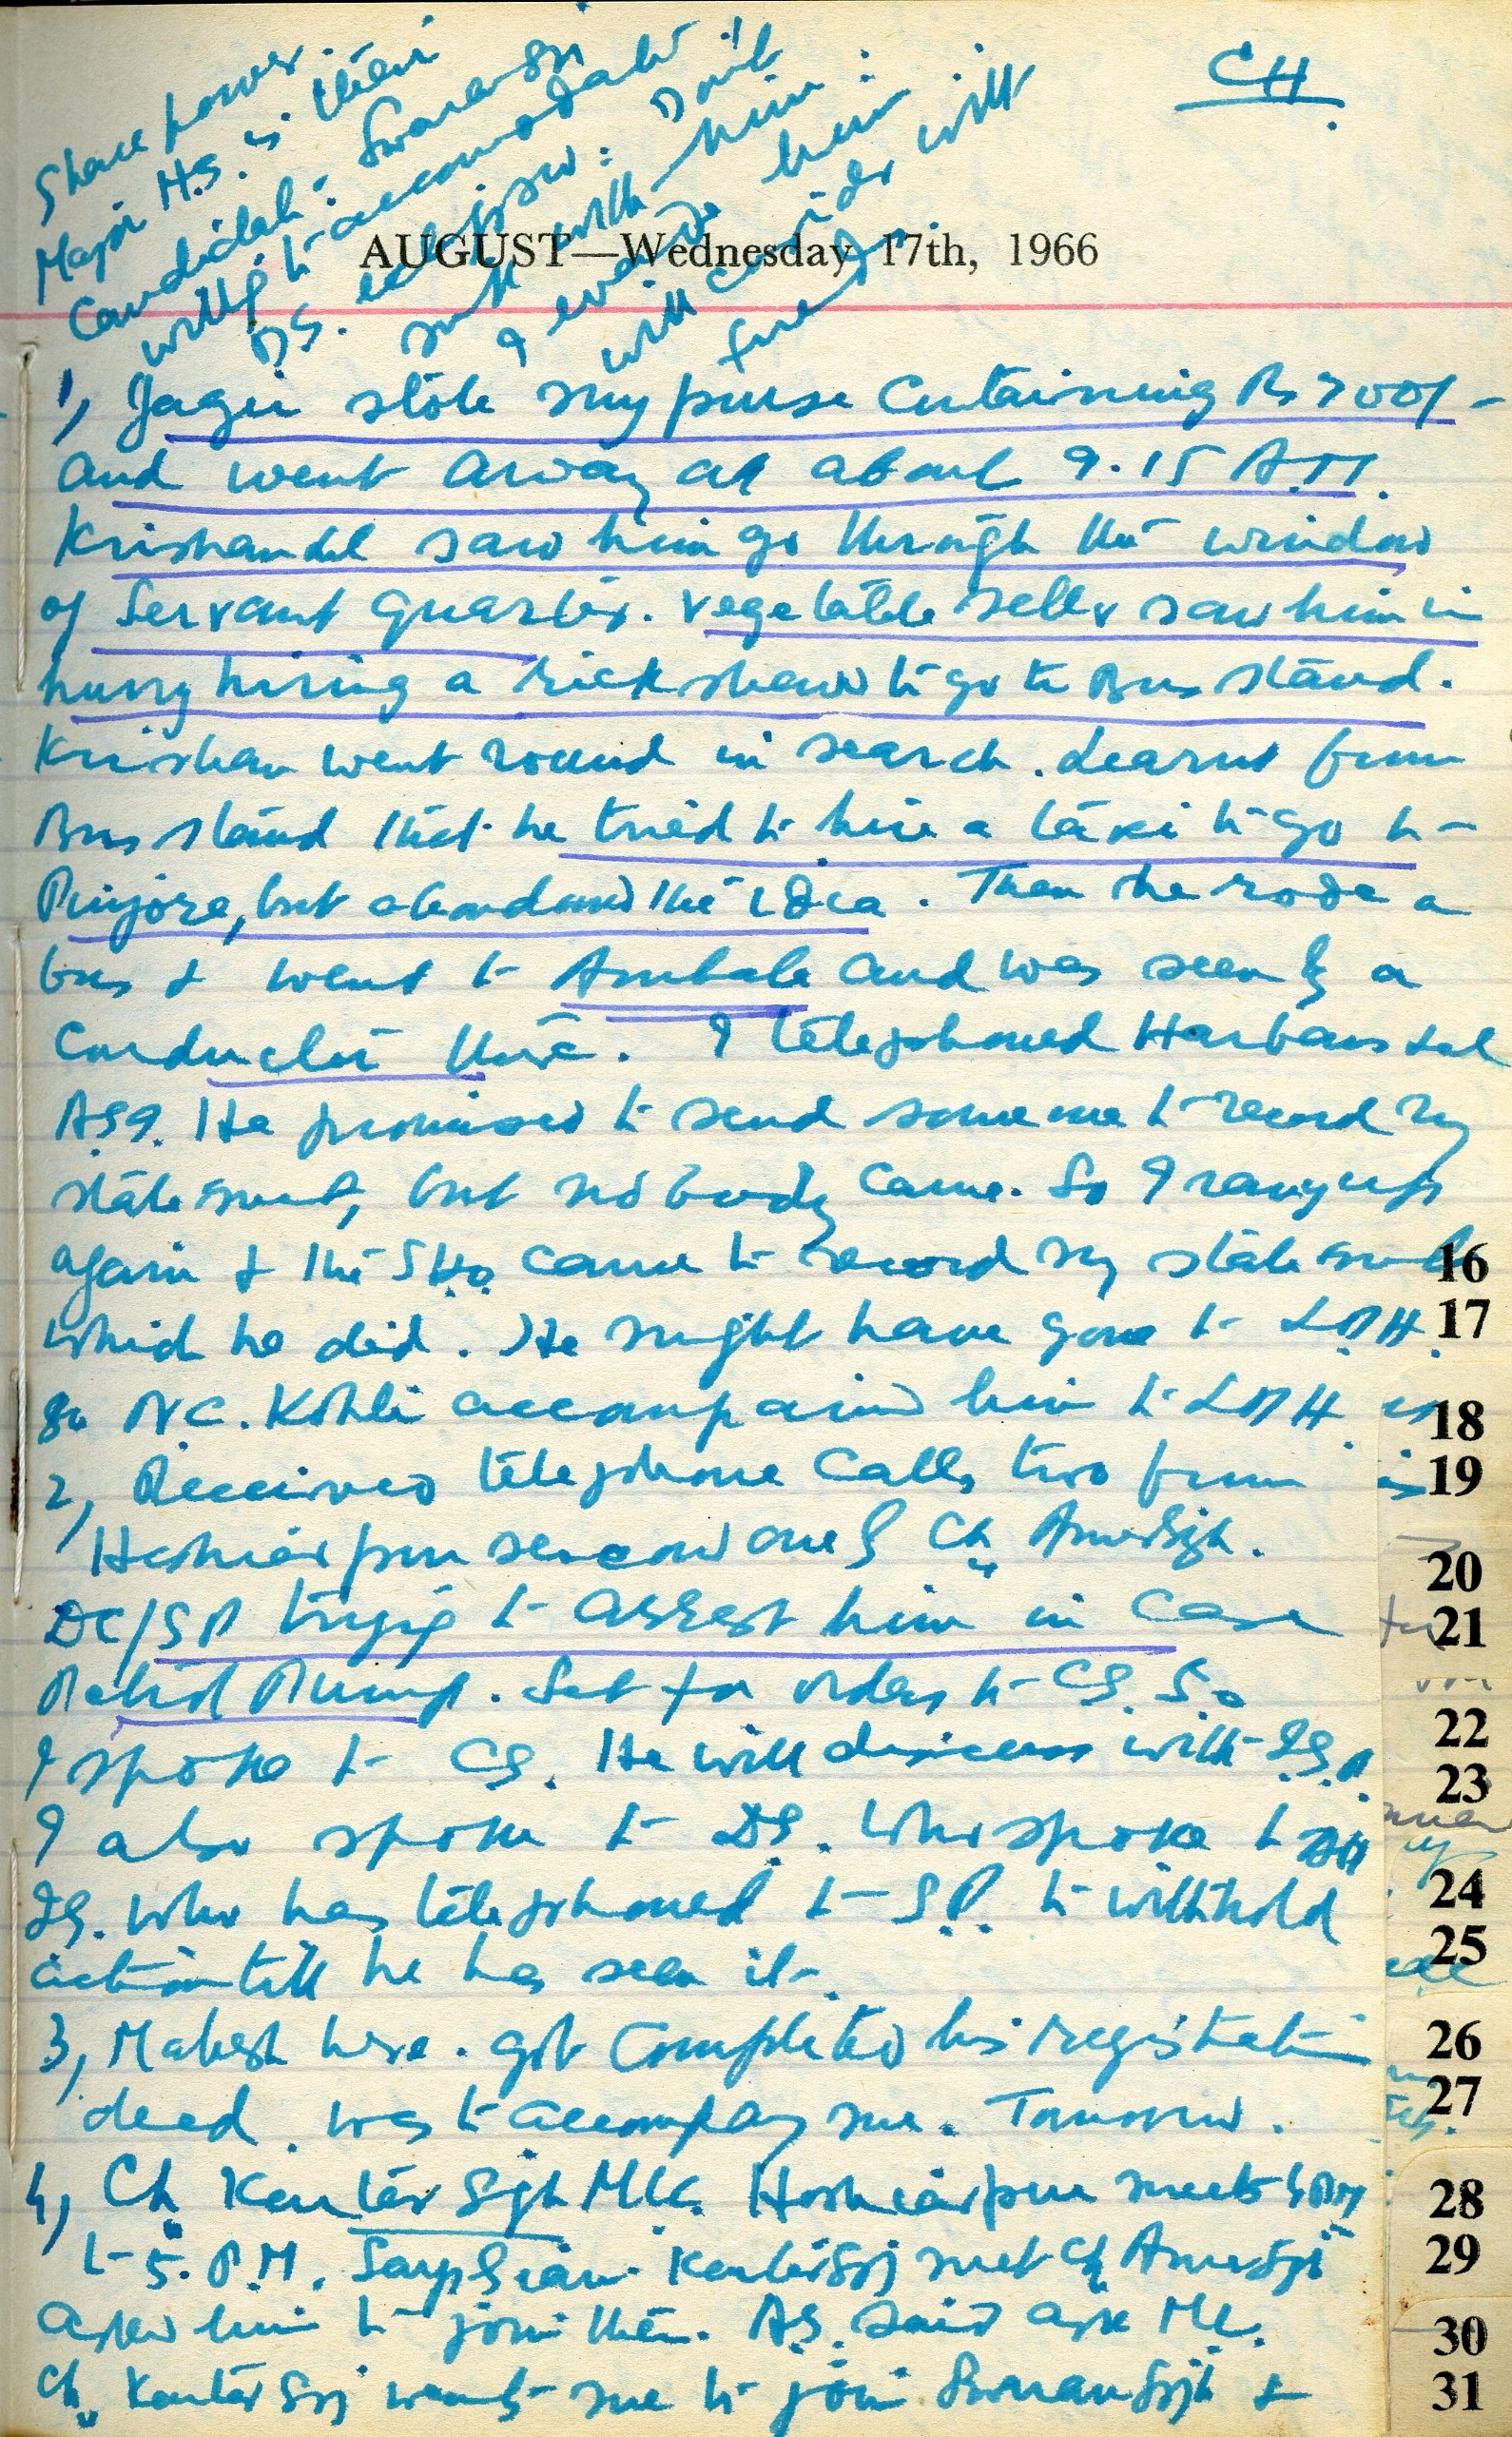 CH.
Share power.
Major H.S. is their
Candidate. Swaran Sgi
willg to accomodate
D.S. too. Don't
with him.
I him
will consider with
AUGUST—Wednesday 17th, 1966
1, Jagir stole my purse containing Rs 700/-
and went away at about 9.15 A.M.
Krishanlal saw him go through the window
of Servant quarter. Vegetable seller saw him in
hurry hiring a rickshaw to go to Bus stand.
Krishan went round in search. Learnt from
Bus stand that he tried to hire a taxi to go to
Pinjore, but abandoned the idea. Then he rode a
bus & went to Ambala and was seen by a
Conductor there. I telephoned Harbans Lal
ASI. He promised to send some one to record my
statement, but nobody came. So I rang up
again & the S.H.O. came to record my statement
which he did. He might have gone to LDH.
So N.C. Kohli accompanied him to LDH
2, Received telephone calls two from
Hoshiarpur second one of Ch. Amar Sgh.
DC/SP tryig to arrest him in case
Petrol Pump. Sent for orders to C.S. So
I spoke to CS. He will discuss with I.G.P.
I also spoke to D.S. who spoke to
IG. who has telephoned to S.P. to withhold
action till he has seen it.
3, Mahesh here. got completed his registration
deed. was to accompany me. Tomorrow.
4, Ch. Kartar Sgh MLC. Hoshiarpur meets
to 5. P.M. Kartar Sgj met Ch Amar Sgj
asked him to join them. A.S. said ask Me.
Ch. Kartar Sgj wants me to join Swaran Sgh &
16
17
18
19
20
21
22
23
24
25
26
27
28
29
30
31